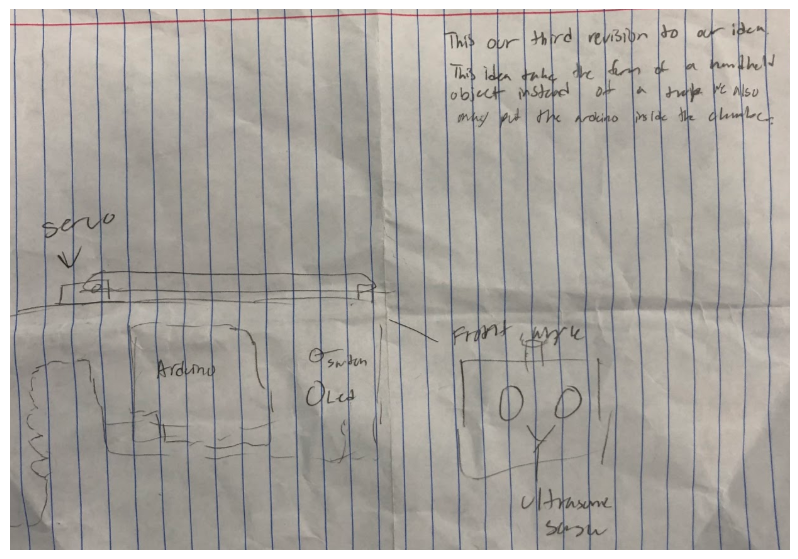 This our third revision to our idea.
This idea take the form of a handheld
object instead of a we also
may put the arduino inside the chamber.
servo
Front angle
Arduino
switch
Led
Ultrasonic
sensor